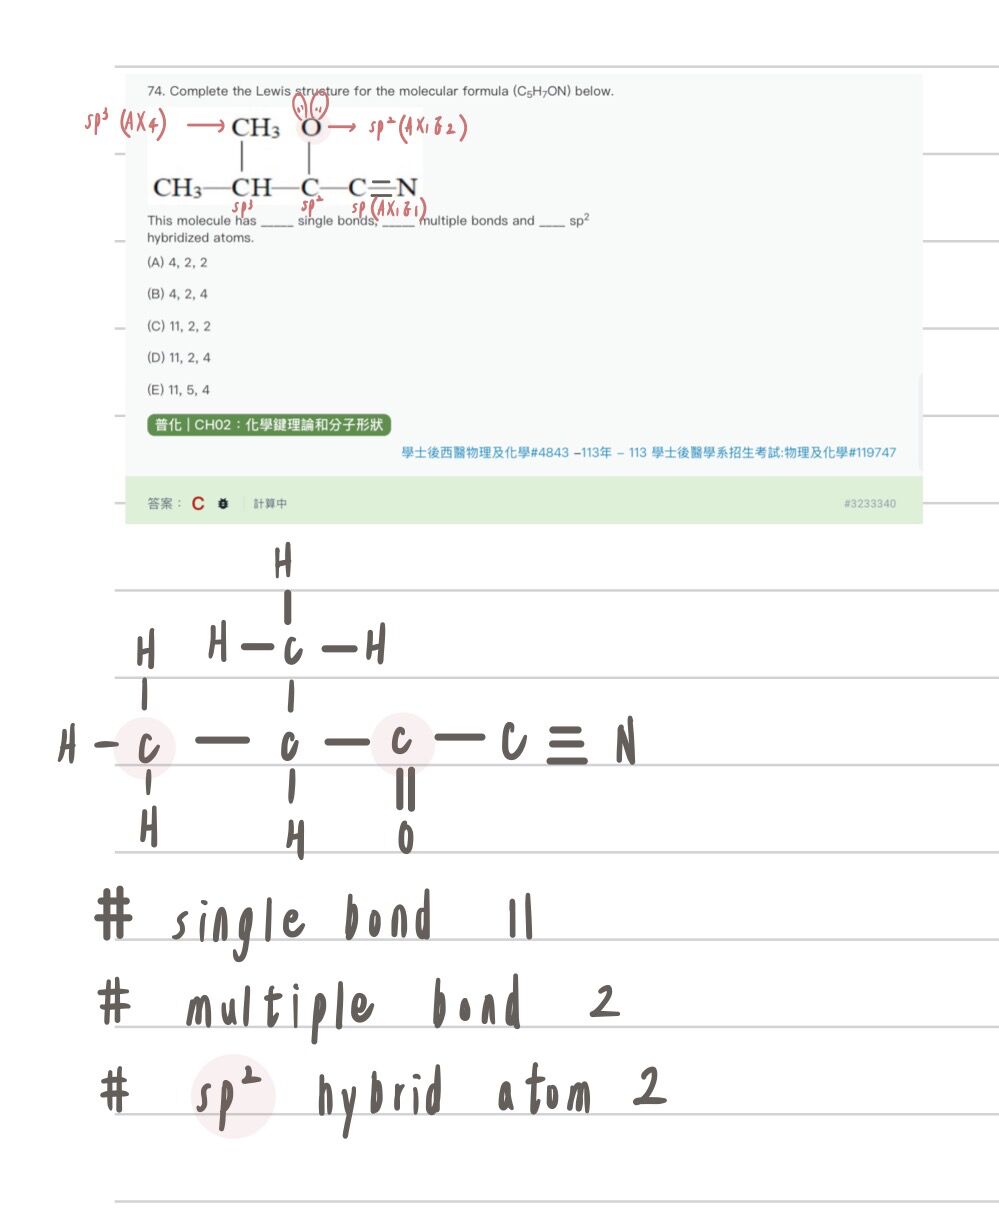 74. Complete the Lewis structure for the molecular formula (C₅H₇ON) below.
sp³ (AX4) → CH₃ O → sp² (AX₁E₂)
CH₃—CH—C—C≡N
sp³ sp² sp (AX₁E₁)
This molecule has _____ single bonds, _____ multiple bonds and ____ sp²
hybridized atoms.
(A) 4, 2, 2
(B) 4, 2, 4
(C) 11, 2, 2
(D) 11, 2, 4
(E) 11, 5, 4
普化 | CH02：化學鍵理論和分子形狀
學士後西醫物理及化學#4843 –113年 – 113 學士後醫學系招生考試:物理及化學#119747
答案： C 計算中 #3233340
H
H H—C—H
H–C—C—C—C≡N
H H O
# single bond 11
# multiple bond 2
# sp² hybrid atom 2